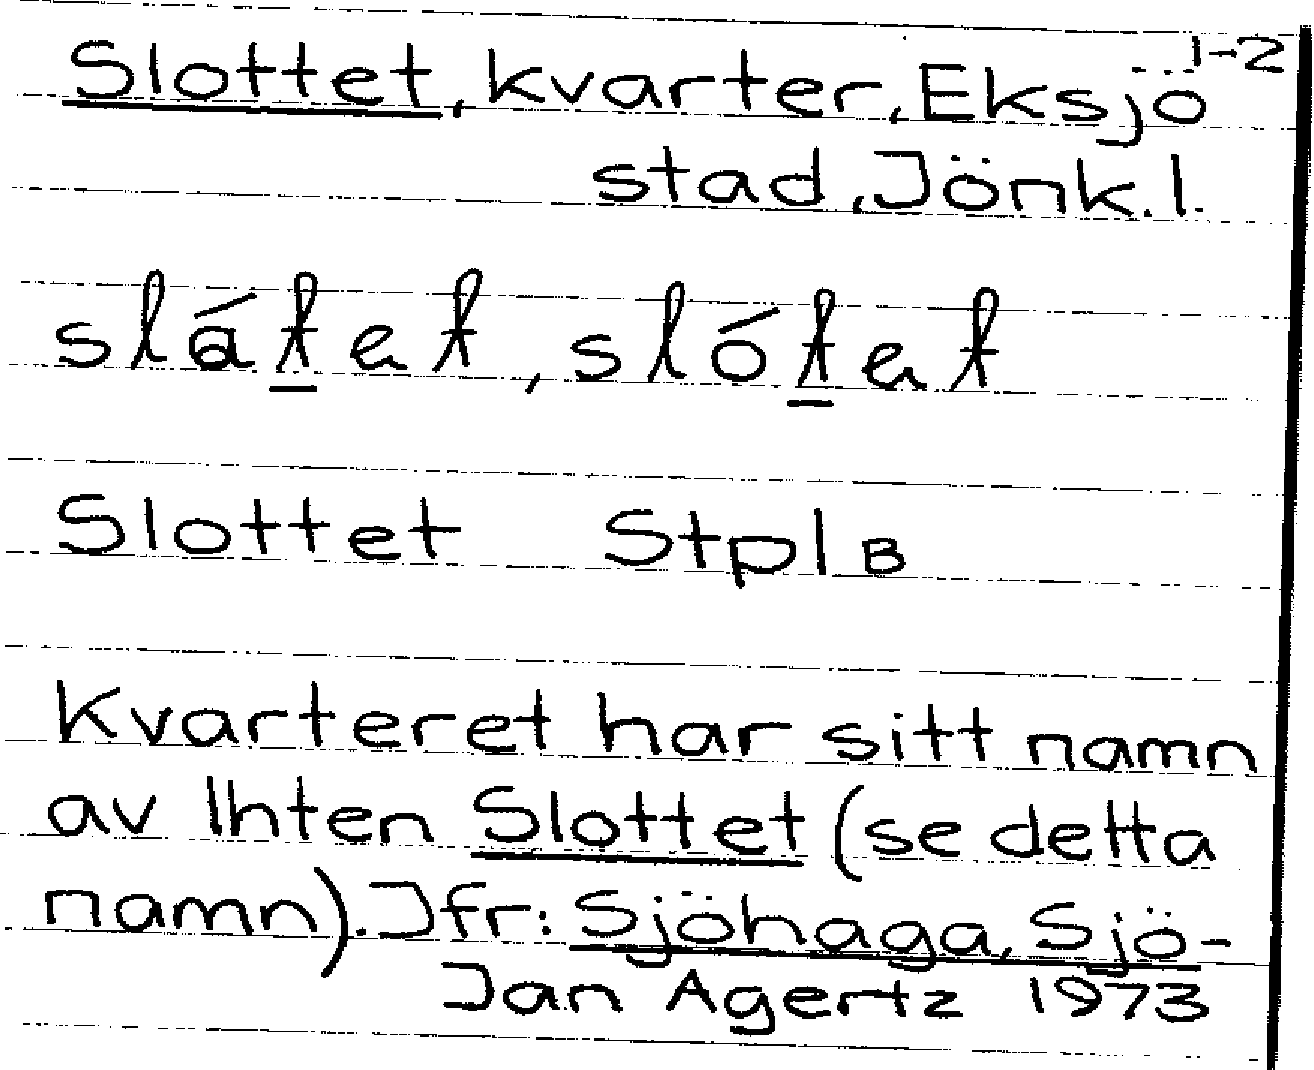 1-2
Slottet, kvarter, Eksjö
stad, Jönk.l.
slåtet, slótet
Slottet Stpl B
Kvarteret har sitt namn
av lhten Slottet (se detta
namn). Jfr: Sjöhaga, Sjö-
Jan Agertz 1973